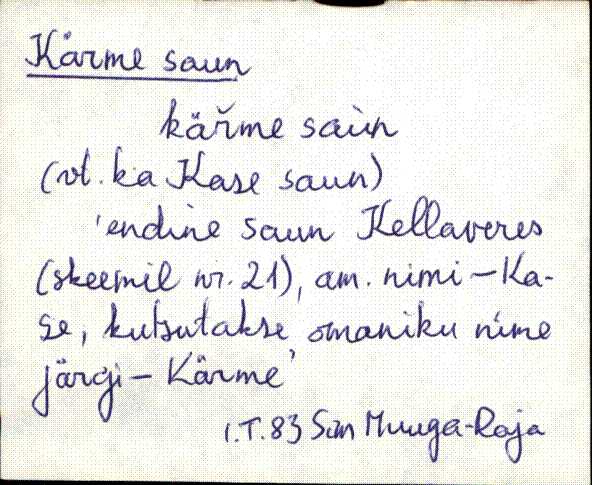 Kärme saun
kär̆me saùn
(vt. ka Kase saun)
'endine saun Kellaveres
(skeemil nr. 21), am. nimi – Ka-
se, kutsutakse omaniku nime
järgi – Kärme'
I.T. 83 Sim Muuga-Roja